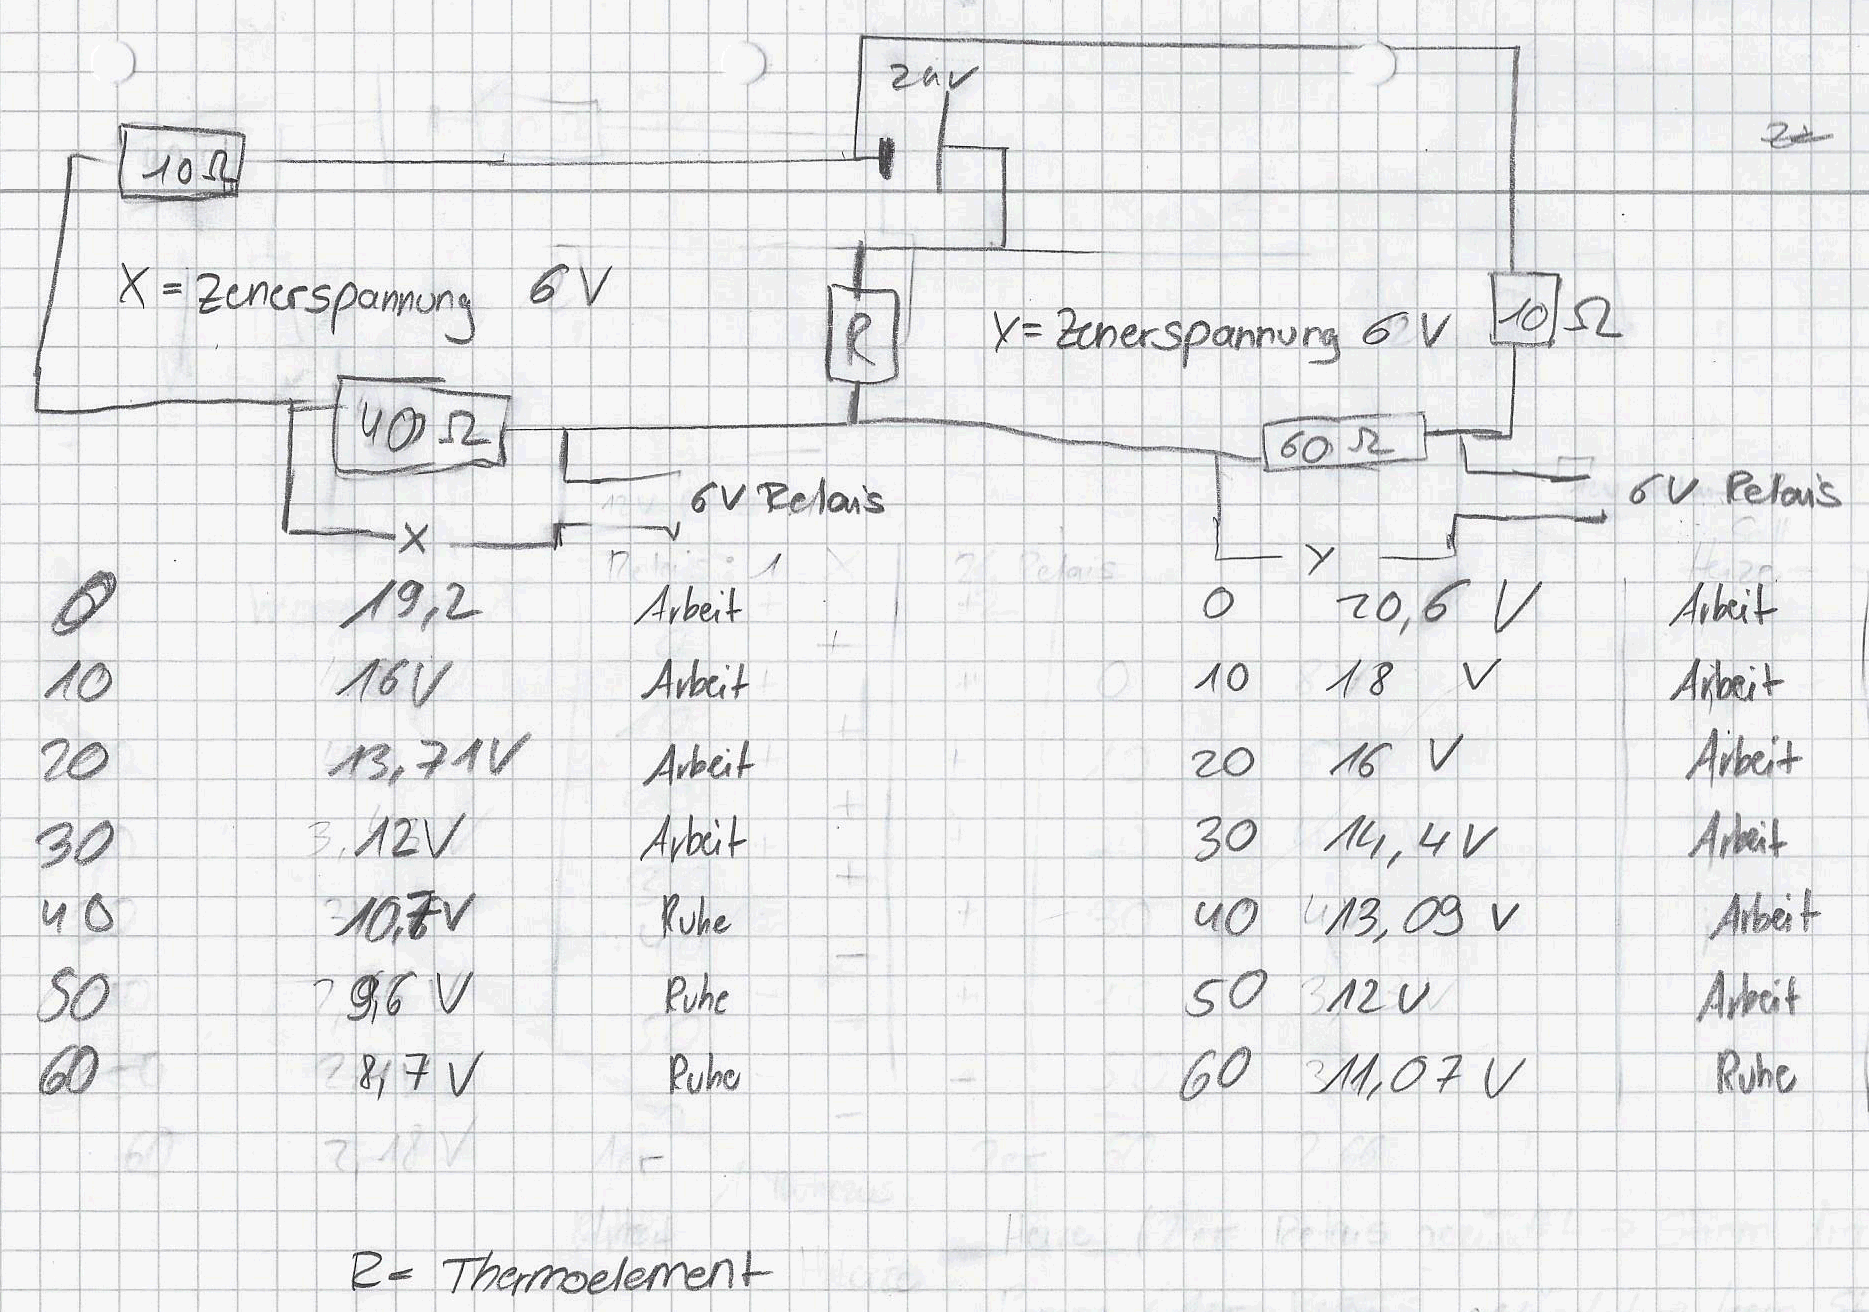 24V
10 Ω
X = Zenerspannung 6 V
R
Y = Zenerspannung 6 V
10 Ω
40 Ω
60 Ω
6V Relais
6V Relais
X
Y
0 19,2 Arbeit 0 20,6 V Arbeit
10 16V Arbeit 10 18 V Arbeit
20 13,71V Arbeit 20 16 V Arbeit
30 12V Arbeit 30 14,4V Arbeit
40 10,7V Ruhe 40 13,09 V Arbeit
50 9,6 V Ruhe 50 12V Arbeit
60 8,7 V Ruhe 60 11,07 V Ruhe
R= Thermoelement